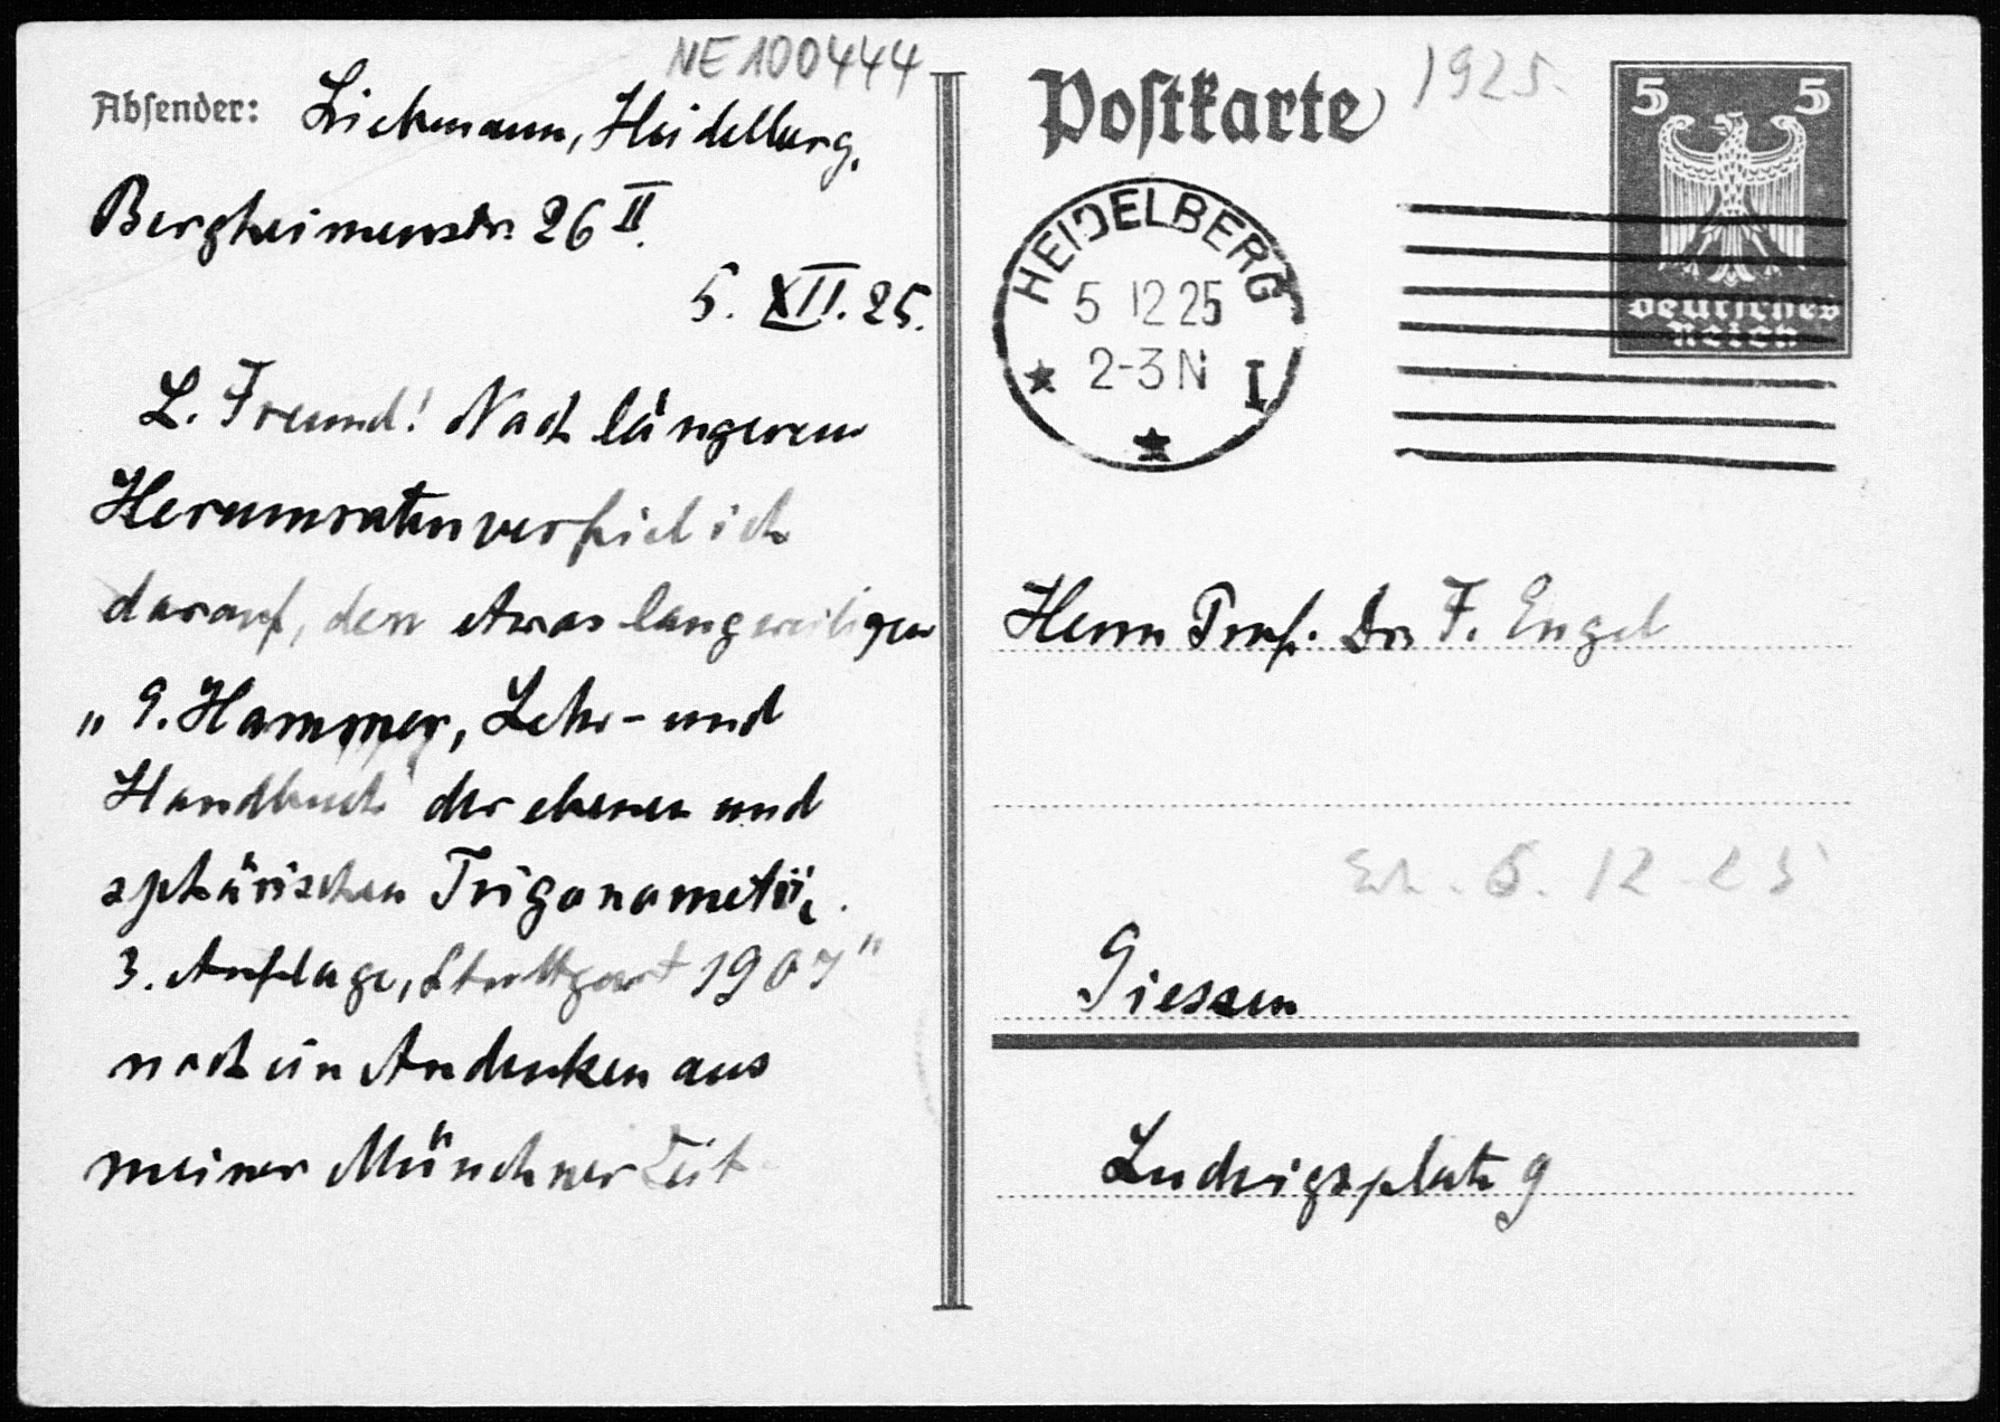 NE 100444
Absender: Liebmann, Heidelberg,
Bergheimerstr. 26 II.
5. XII. 25.
L. Freund! Nach längerem
Herumraten verfiel ich
darauf, den etwas langweiligen
„ 9. Hammer, Lehr- und
Handbuch der ebenen und
sphärischen Trigonometrie.
3. Auflage, Stuttgart 1907"
noch ein Andenken aus
meiner Münchner Zeit
Postkarte
1925.
5 5
Deutsches
Reich
HEIDELBERG
5 12 25
2-3 N I
Herrn Prof. Dr. F. Engel
6. 12 25
Giessen
Ludwigsplatz 9